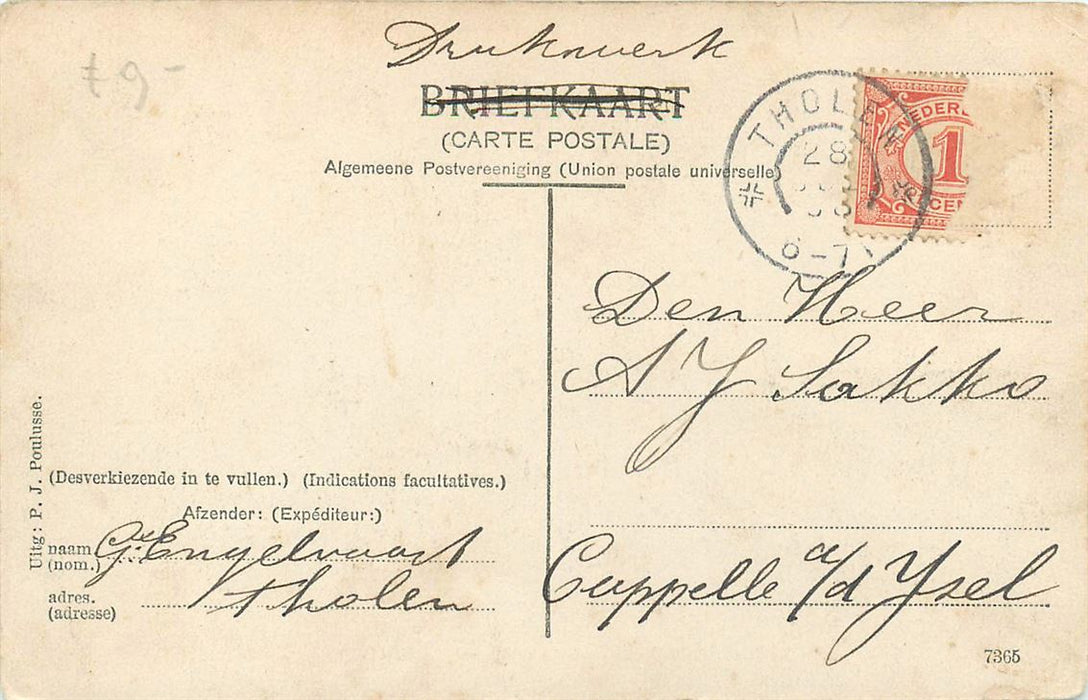 Drukwerk
£ 9-
BRIEFKAART
(CARTE POSTALE)
Algemeene Postvereeniging (Union postale universelle)
THOLEN
28
6-7
NEDERL
1
CEN
Den Heer
A J Sakko
Cappelle a/d Ysel
Uitg: P. J. Poulusse.
(Desverkiezende in te vullen.) (Indications facultatives.)
Afzender: (Expéditeur:)
naam Engelvaart
(nom.)
adres. Tholen
(adresse)
7365